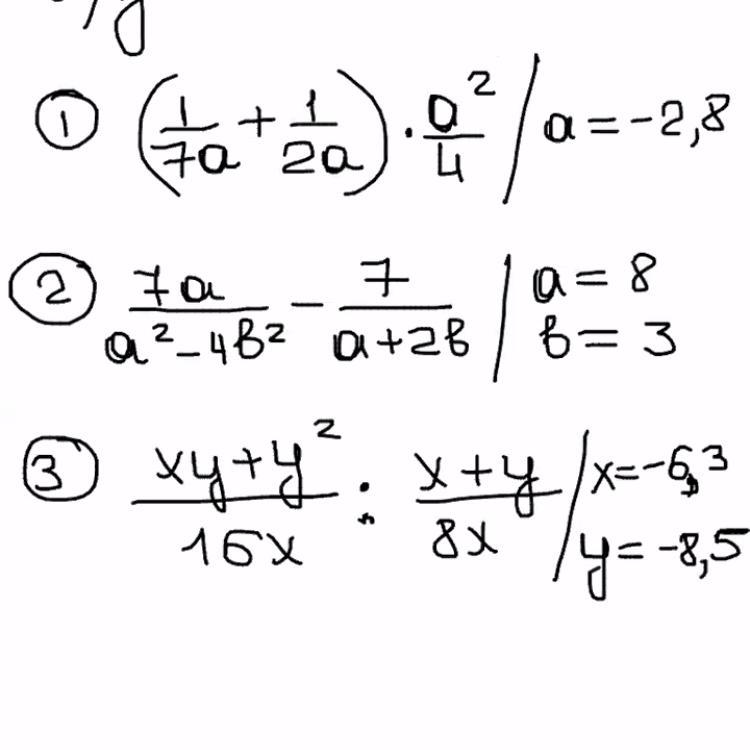 ① (1/7a + 1/2a) · a²/4 / a = -2,8
② 7a/(a²-4b²) - 7/(a+2b) | a = 8
b = 3
③ (xy+y²)/16x : (x+y)/8x / x=-6,3
y=-8,5